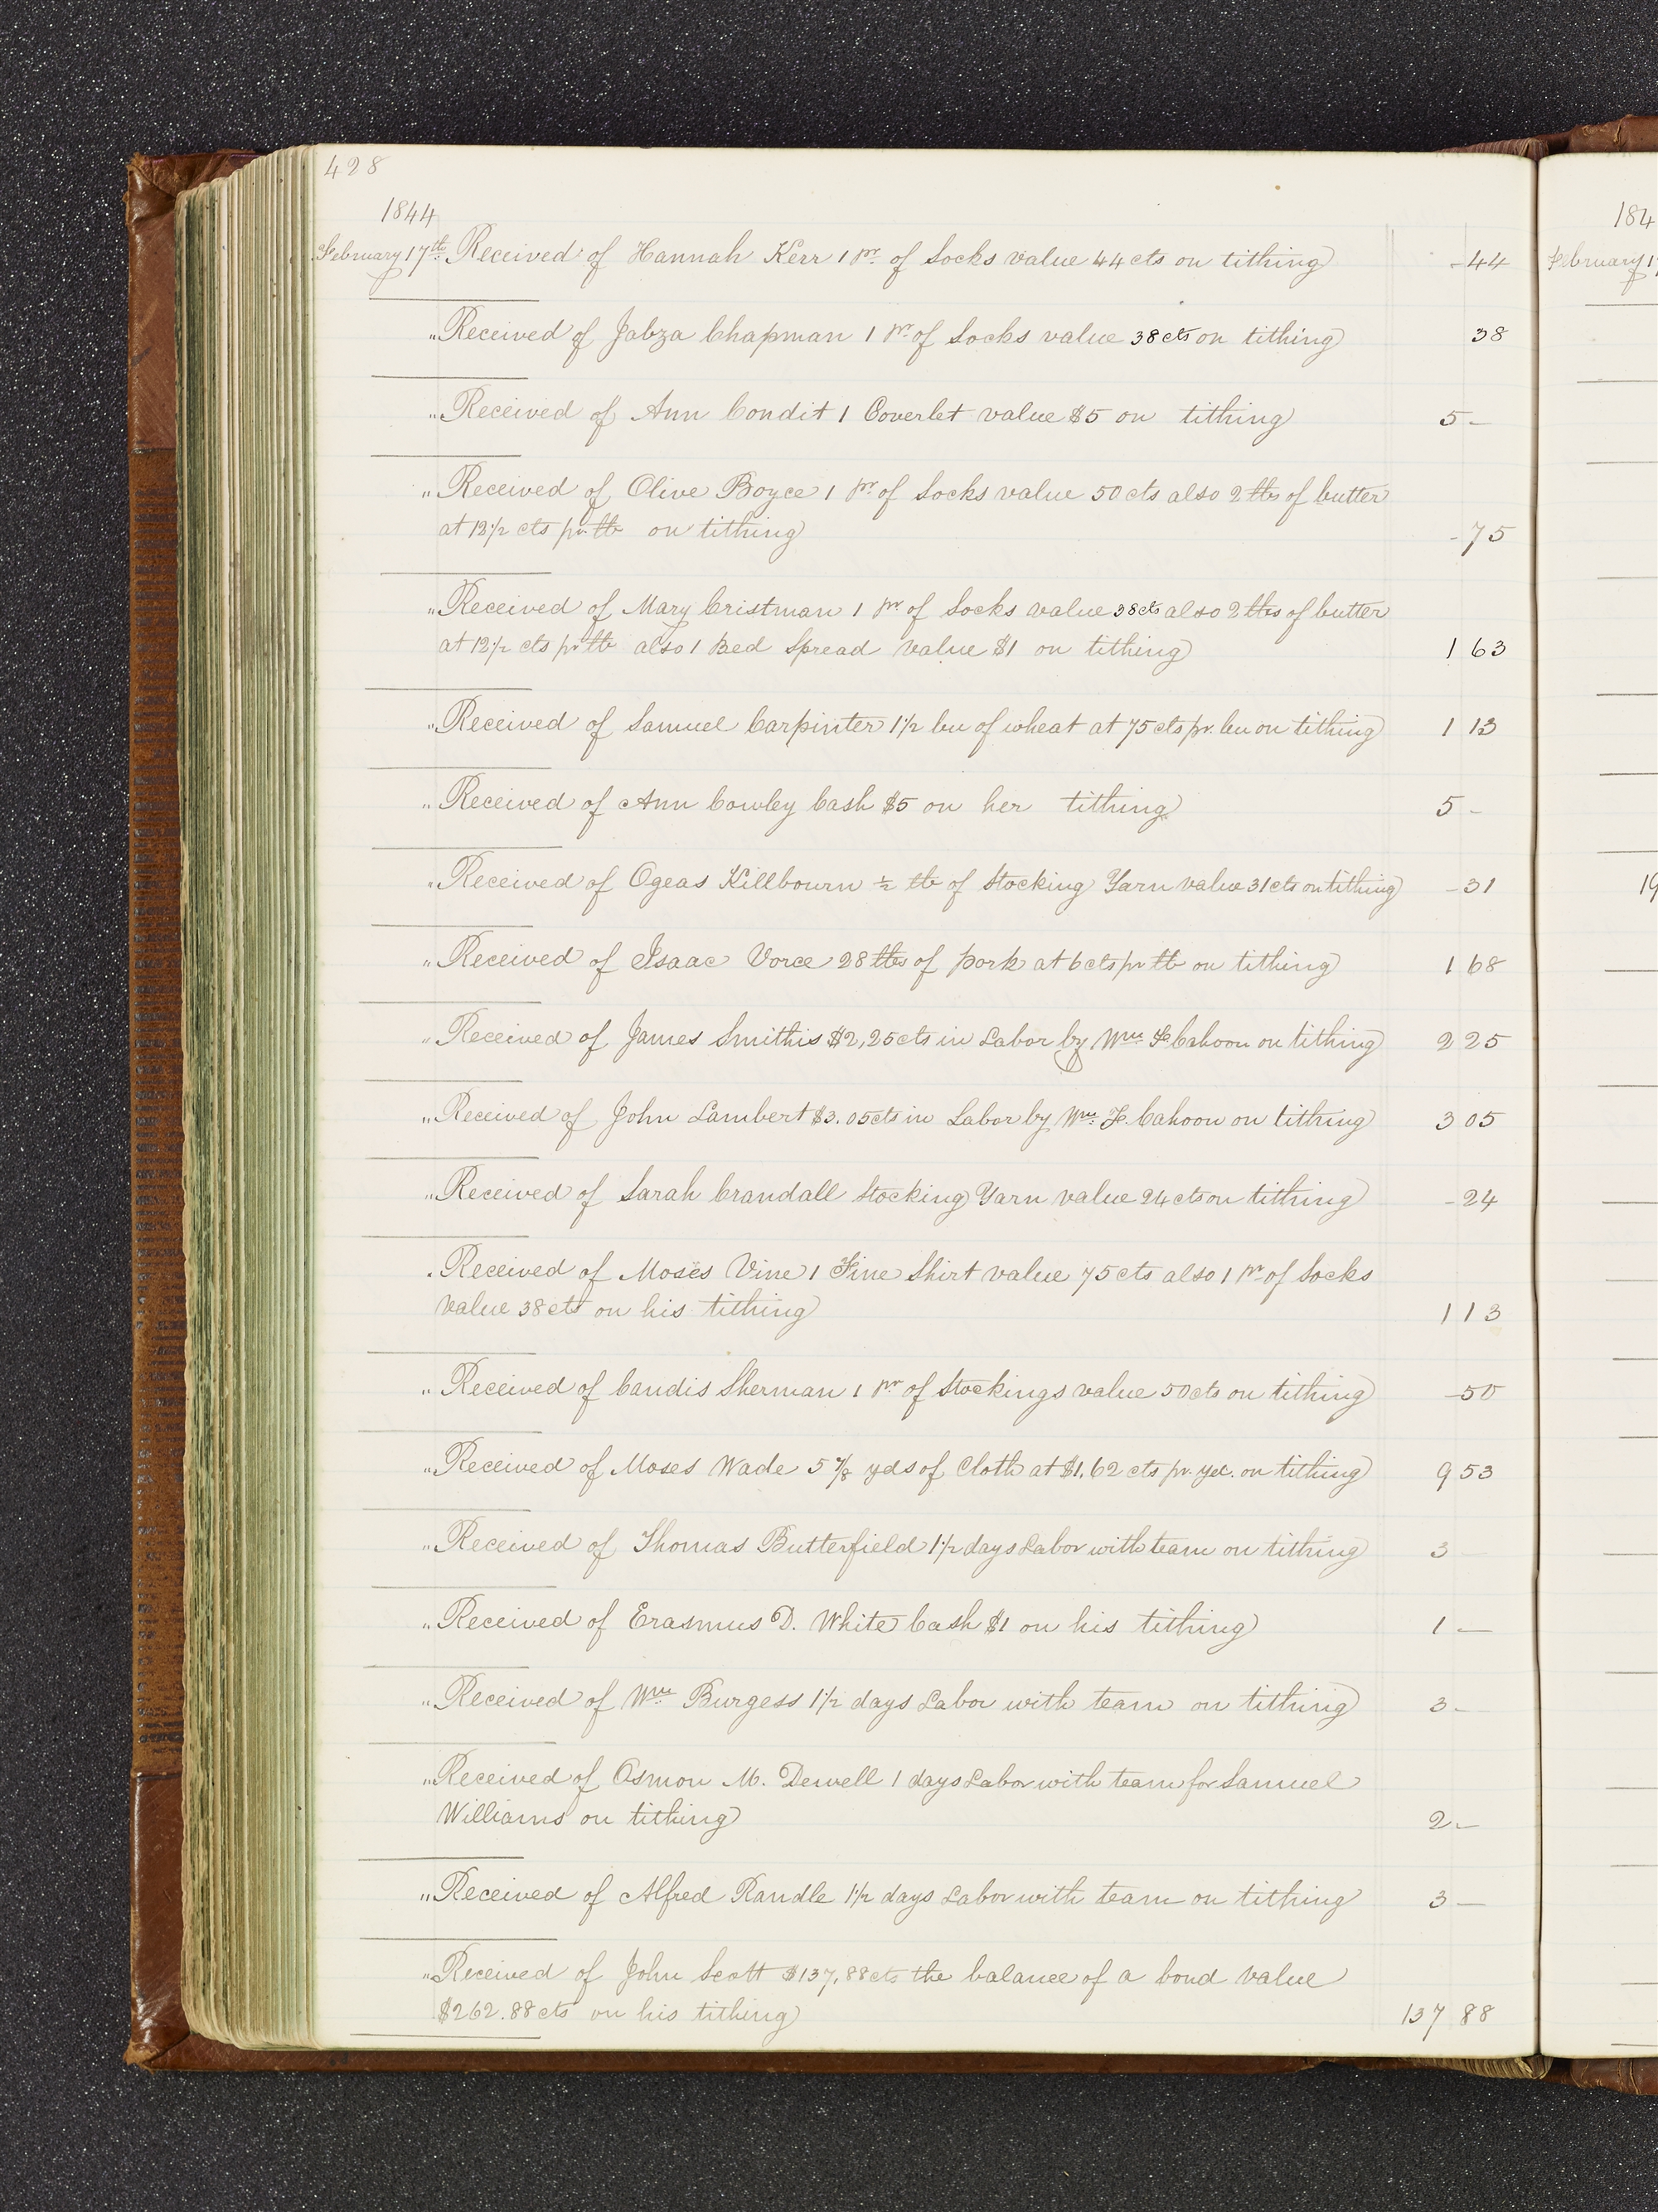 428
1844
February 17th. Received of Hannah Kerr 1 pr. of Socks value 44 cts on tithing -44
" Received of Jabza Chapman 1 pr. of Socks value 38 cts on tithing 38
" Received of Ann Condit 1 Coverlet value $5 on tithing 5-
" Received of Olive Boyce 1 pr. of Socks value 50 cts also 2 lbs of butter
at 12 1/2 cts pr. lb on tithing -75
" Received of Mary Cristman 1 pr. of Socks value 38 cts also 2 lbs of butter
at 12 1/2 cts pr lb also 1 Bed Spread value $1 on tithing 1 63
" Received of Samuel Carpinter 1 1/2 bu of wheat at 75 cts pr. bu on tithing 1 13
" Received of Ann Cowley Cash $5 on her tithing 5 -
" Received of Ogeas Killbourn 1/2 lb of Stocking Yarn value 31 cts on tithing -31
" Received of Isaac Vorce 28 lbs of pork at 6 cts pr lb on tithing 1 68
" Received of James Smithis $2,25 cts in Labor by Wm. F Cahoon on tithing 2 25
" Received of John Lambert $3.05 cts in Labor by Wm. F. Cahoon on tithing 3 05
" Received of Sarah Crandall Stocking Yarn value 24 cts on tithing -24
" Received of Moses Vine 1 Fine Shirt value 75 cts also 1 pr. of Socks
value 38 cts on his tithing 1 13
" Received of Candis Sherman 1 pr. of Stockings value 50 cts on tithing -50
" Received of Moses Wade 5 7/8 yds of Cloth at $1,62 cts pr. yd. on tithing 9 53
" Received of Thomas Butterfield 1 1/2 days Labor with team on tithing 3 -
" Received of Erasmus D. White Cash $1 on his tithing 1 -
" Received of Wm. Burgess 1 1/2 days Labor with team on tithing 3 -
" Received of Osmon M. Dewell 1 days Labor with team for Samuel
Williams on tithing 2 -
" Received of Alfred Randle 1 1/2 days Labor with team on tithing 3 -
" Received of John Scott $137,88 cts the balance of a bond value
$262.88 cts on his tithing 137 88
184
February 17
19